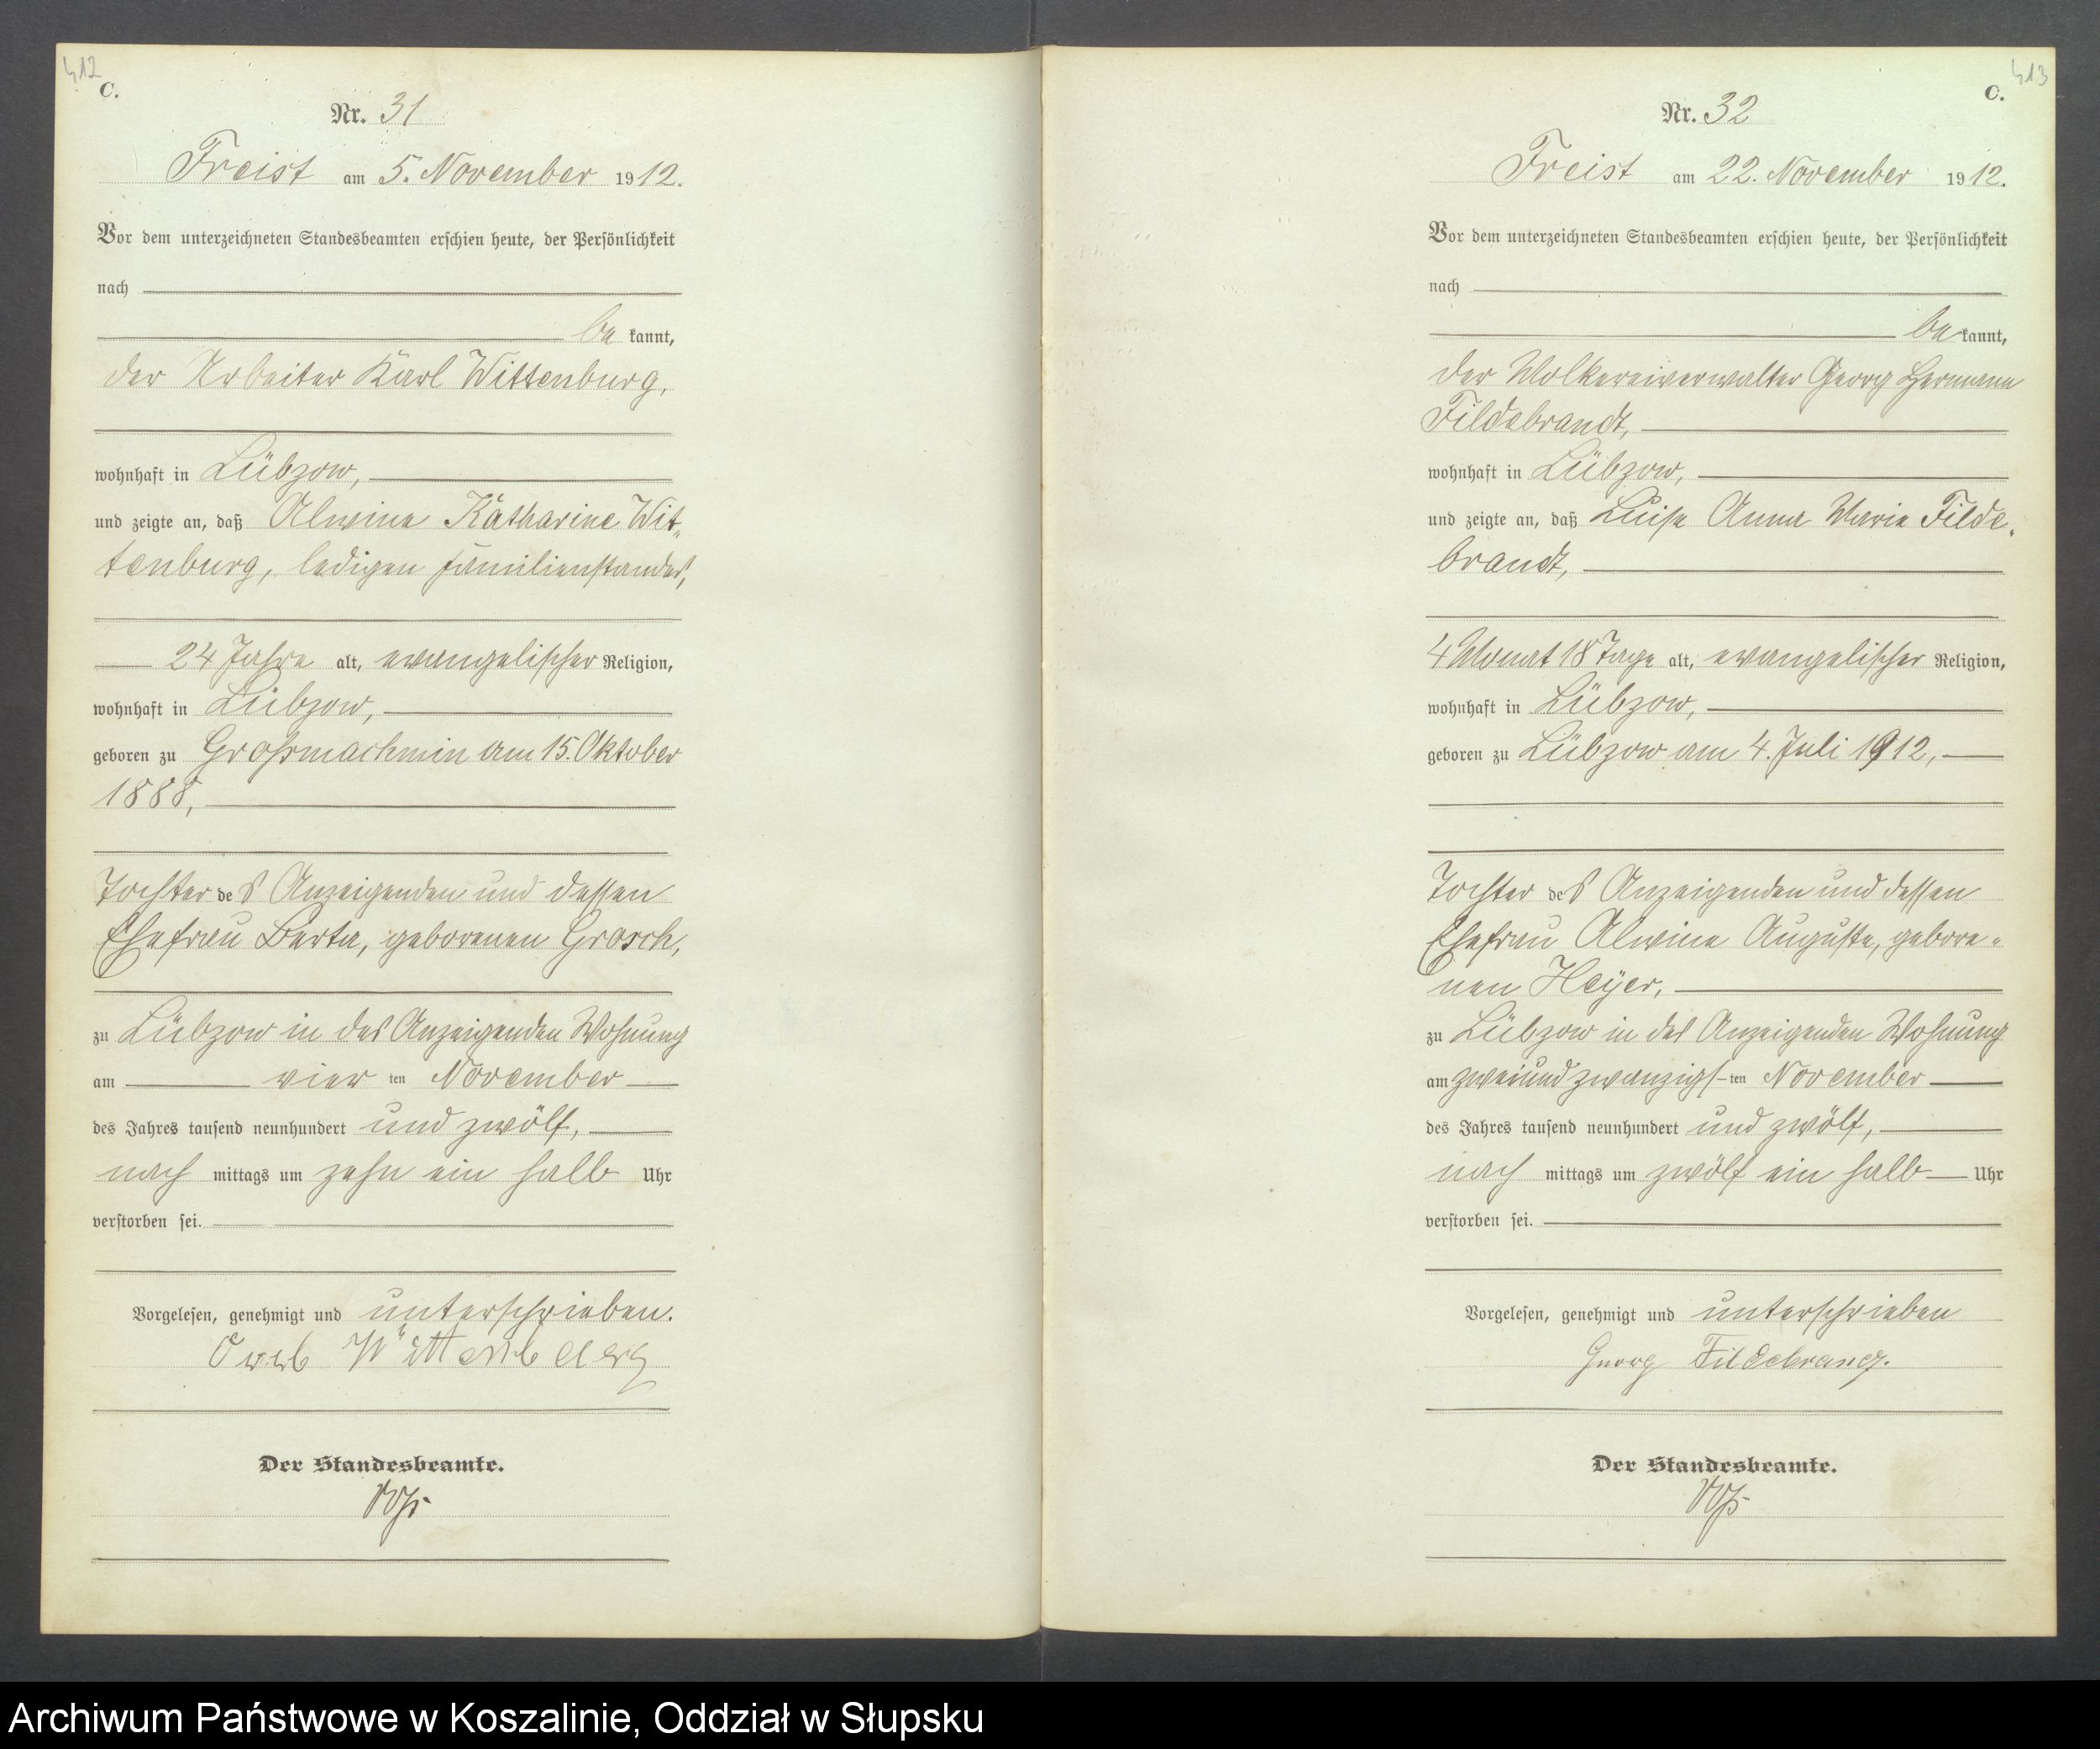 412
C.
Nr. 31
Freist am 5. November 1912.
Vor dem unterzeichneten Standesbeamten erschien heute, der Persönlichkeit
nach
be kannt,
der Arbeiter Karl Wittenburg,
wohnhaft in Lübzow,
und zeigte an, daß Alwine Katharine Wit„
tenburg, ledigen Familienstandes,
24 Jahre alt, evangelischer Religion,
wohnhaft in Lübzow,
geboren zu Großmachmin am 15. Oktober
1888,
Tochter des Anzeigenden und dessen
Ehefrau Berta, geborenen Grosch,
zu Lübzow in des Anzeigenden Wohnung
am vier ten November
des Jahres tausend neunhundert und zwölf,
nach mittags um zehn ein halb Uhr
verstorben sei.
Vorgelesen, genehmigt und unterschrieben.
Wittenburg
Der Standesbeamte.
413
C.
Nr. 32
Freist am 22. November 1912.
Vor dem unterzeichneten Standesbeamten erschien heute, der Persönlichkeit
nach
be kannt,
der Molkereiverwalter Georg Hermann
Fildebrandt,
wohnhaft in Lübzow,
und zeigte an, daß Luise Anna Marie Filde„
brandt,
4 Monat 18 Tage alt, evangelischer Religion,
wohnhaft in Lübzow,
geboren zu Lübzow am 4. Juli 1912,
Tochter des Anzeigenden und dessen
Ehefrau Alwine Auguste, gebore=
nen Heyer,
zu Lübzow in des Anzeigenden Wohnung
am zweiundzwanzigs-ten November
des Jahres tausend neunhundert und zwölf,
nach mittags um zwölf ein halb Uhr
verstorben sei.
Vorgelesen, genehmigt und unterschrieben
Georg Fildebrandt.
Der Standesbeamte.
Archiwum Państwowe w Koszalinie, Oddział w Słupsku